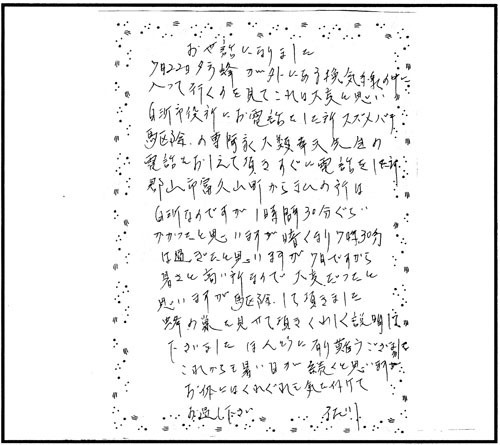 お世話になりました
7月22日夕方蜂が外にある換気扇の中に
入って行くのを見てこれは大変と思い
白河市役所にお電話をした所スズメバチ
駆除の専門家大類幸夫先生の
電話をおしえて頂きすぐに電話をした所
郡山市富久山町から私の所は
白河なのですが1時間30分ぐらい
かかったと思いますが暗くなり7時30分
は過ぎたと思いますが7月ですから
暑さと高い所なので大変だったと
思いますが駆除して頂きました
蜂の巣を見せて頂きくわしく説明して
下さいました ほんとうに有り難うございました
これからも暑い日が続くと思いますが
お体にはくれぐれも気を付けて
お過し下さい